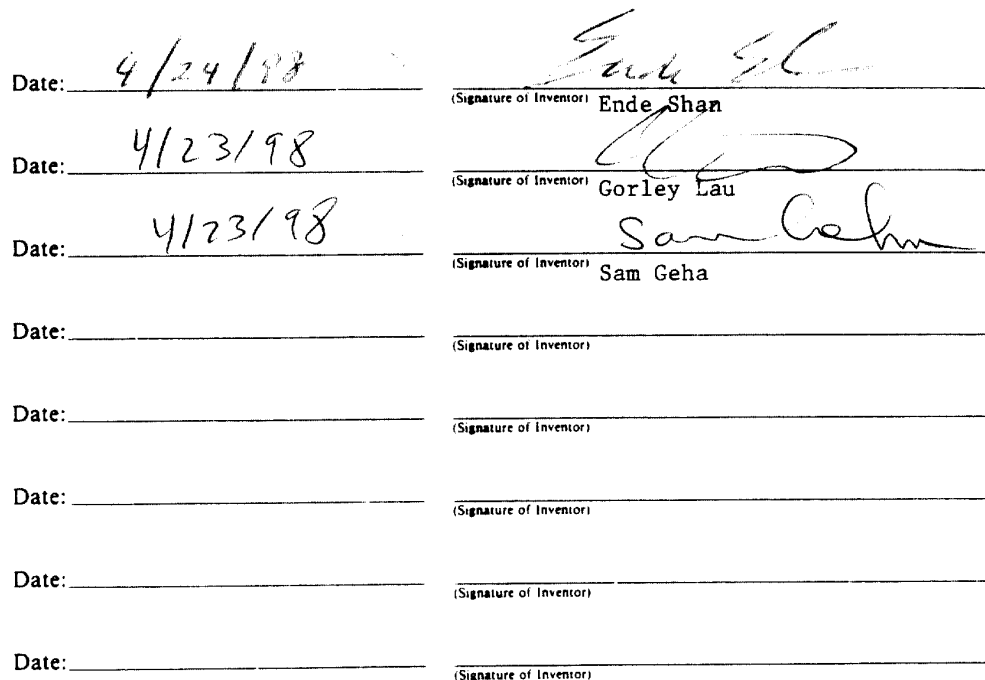 Date: 4/24/98 Ende Sh
(Signature of Inventor) Ende Shan
Date: 4/23/98
(Signature of Inventor) Gorley Lau
Date: 4/23/98 Sam Geha
(Signature of Inventor) Sam Geha
Date:
(Signature of Inventor)
Date:
(Signature of Inventor)
Date:
(Signature of Inventor)
Date:
(Signature of Inventor)
Date:
(Signature of Inventor)